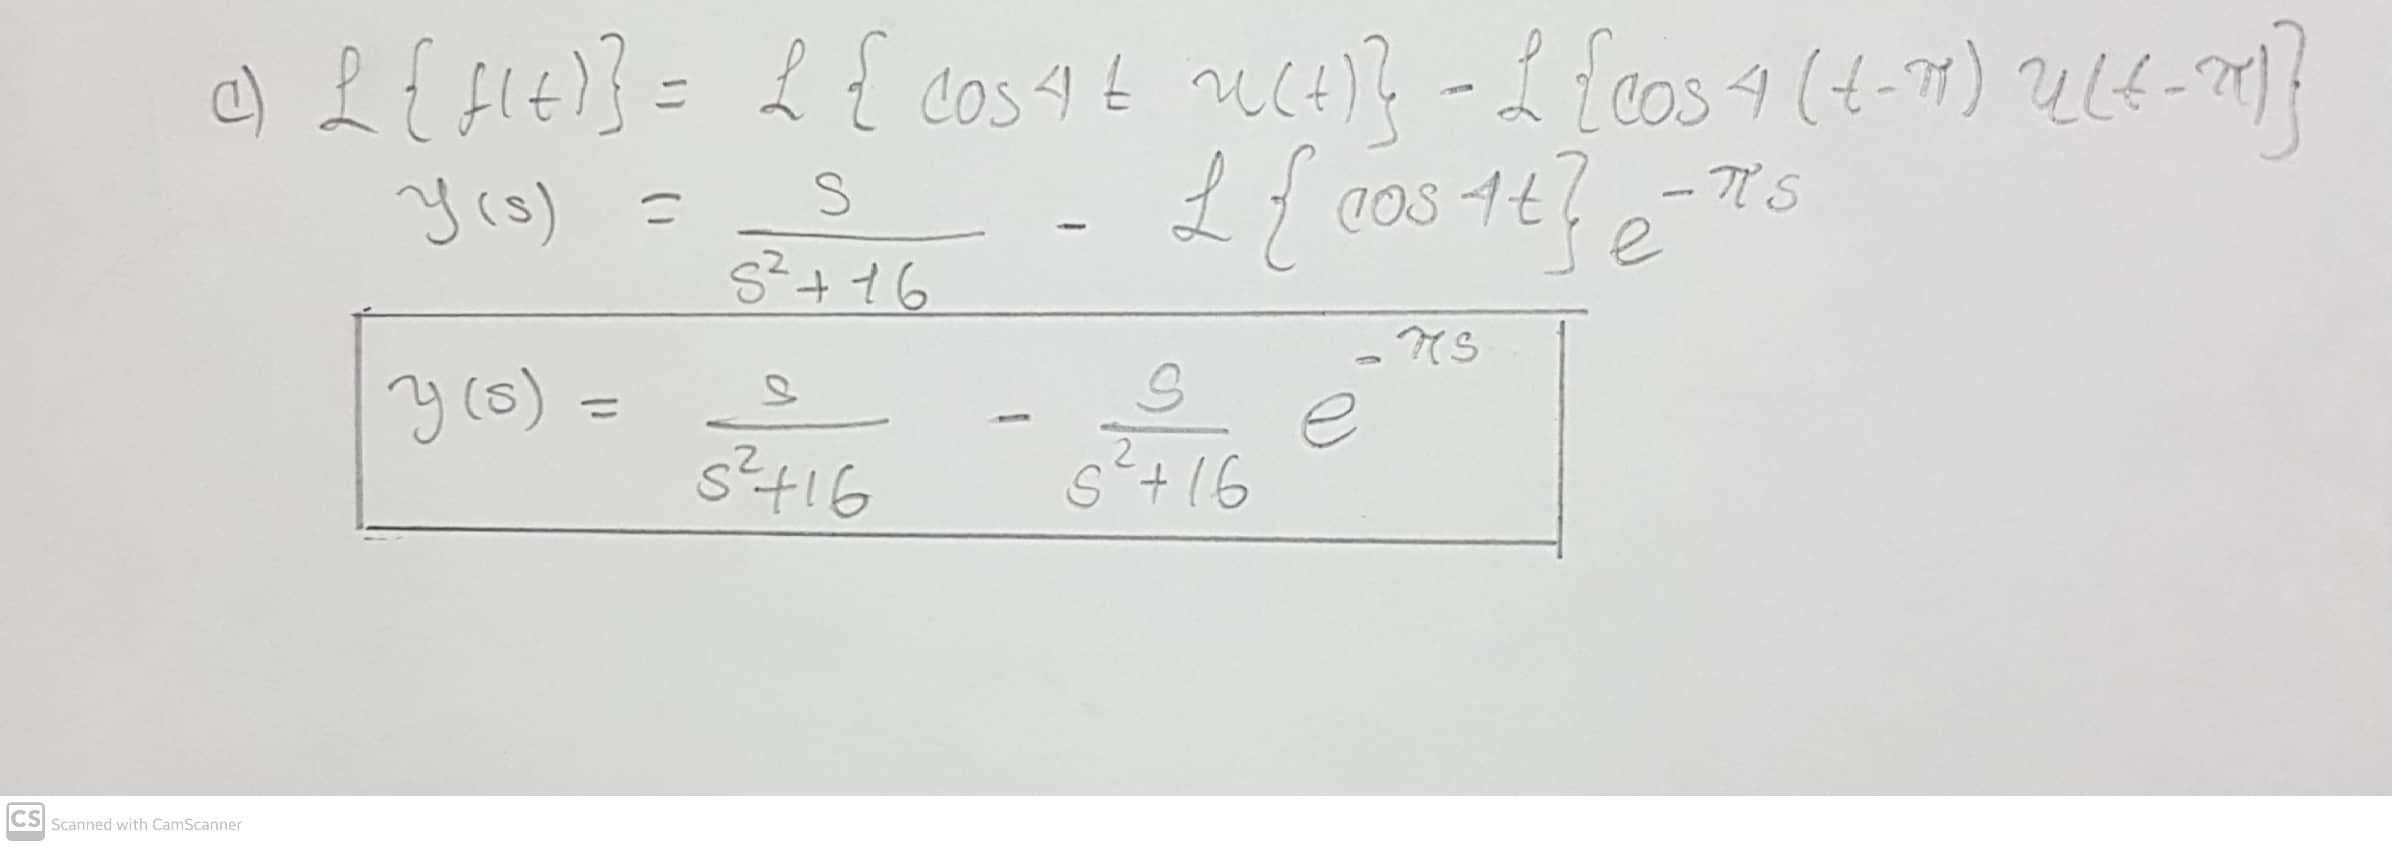 a) ℒ{f(t)} = ℒ{cos4t u(t)} - ℒ{cos4(t-π) u(t-π)}
y(s) = s/(s²+16) - ℒ{cos4t} e^(-πs)
y(s) = s/(s²+16) - s/(s²+16) e^(-πs)
CS Scanned with CamScanner